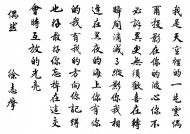 我是天空裡的一片雲偶
爾投影在你的波心你不
必訝異更無須歡喜在轉
瞬間消滅了蹤影你我相
逢在黑夜的海上你有你
的我有我的方向你記得
也好最好你忘掉在這交
會時互放的光亮
偶然 徐志摩